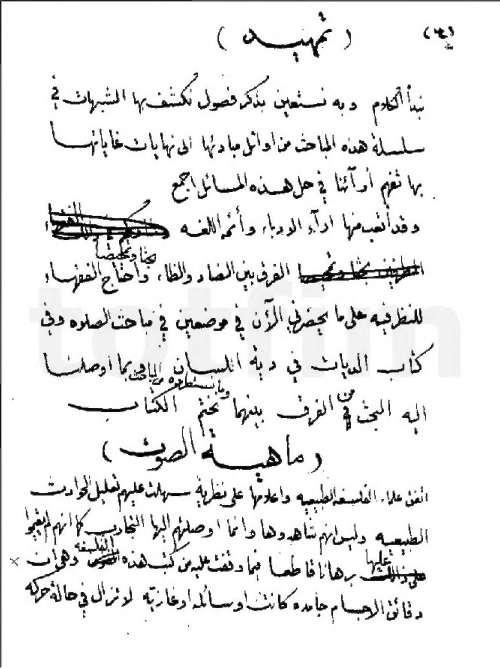 (٣)
( تمهيد )
نبدأ الكلام وبه نستعين بذكر فصول نكشف بها الشبهات في
سلسلة هذه المباحث من اوائل مبادئها الى نهايات غاياتها
بها تفهم آرآئنا في حل هذه المسائل اجمع
وقد اتعب منها ارآء الادباء وأئمة اللغه
بحثاً وتمحيصاً
الفرق بين الضاد والظاء واحتاج الفقهاء
للنظر فيه على ما يحضرني الآن في موضعين في مباحث الصلوه وفي
كتاب الديات في دية اللسان وبما اوصلنا
وما نستطرده من المباحث
اليه البحث من في الفرق بينهما نختم الكتاب
( ماهية الصوت )
اتفق علماء الفلسفه الطبيعيه واعلامها على نظرية سهلت عليهم تعليل الحوادث
الطبيعيه وليس انهم شاهدوها وانما اوصلتهم اليها التجارب كما انهم لم يقيموا
عليها برهاناً قاطعا فيما وقفت عليه من كتب هذه الفلسفه وهي أن
دقائق الاجسام جامده كانت او سائله او غازيه لا تزال في حالة حركه
totfim